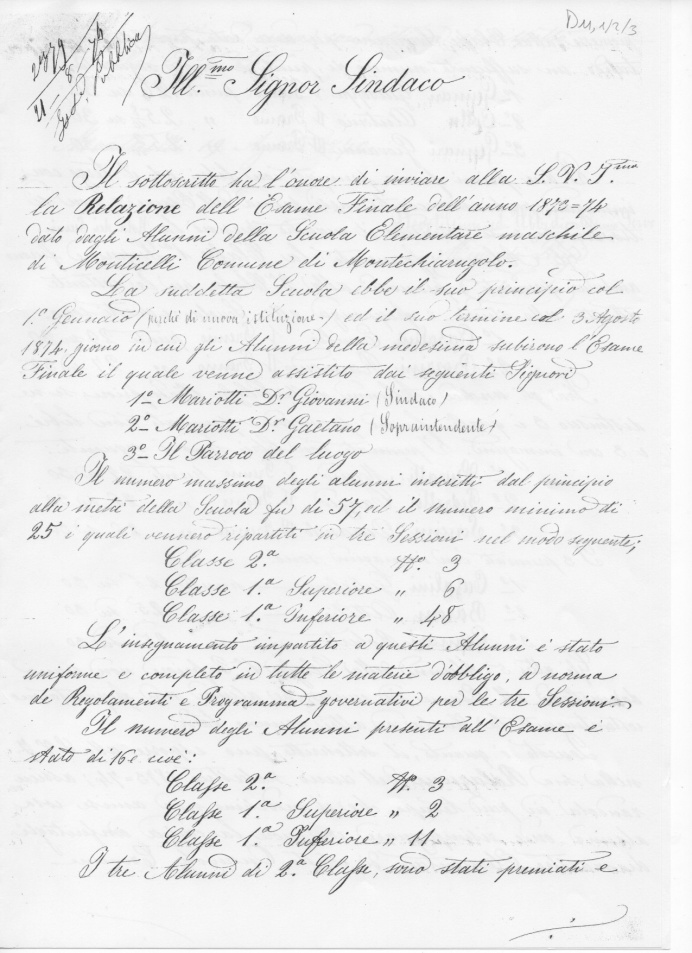 DM, 1/2/3
Istr. Pubblica
Ill.mo Signor Sindaco
Il sottoscritto ha l'onore di inviare alla S. V. I.ma
la Relazione dell'Esame Finale dell'anno 1873=74
dato dagli Alunni della Scuola Elementare maschile
di Monticelli Comune di Montechiarugolo.
La suddetta Scuola ebbe il suo principio col
1.º Gennaio (perchè di nuova istituzione-) ed il suo termine col 3 Agosto
1874, giorno in cui gli Alunni della medesima subirono l'Esame
Finale il quale venne assistito dai seguenti Signori
1º Mariotti Dr Giovanni (Sindaco)
2º Mariotti Dr Gaetano (Sopraintendente)
3º Il Parroco del luogo
Il numero massimo degli alunni inscritti dal principio
alla metà della Scuola fu di 57, ed il numero minimo di
25 i quali vennero ripartiti in tre Sessioni nel modo seguente;
Classe 2.ª Nº 3
Classe 1.ª Superiore „ 6
Classe 1.ª Inferiore „ 48
L'insegnamento impartito a questi Alunni è stato
uniforme e completo in tutte le materie d'obbligo, a norma
de Regolamenti e Programma governativi per le tre Sessioni.
Il numero degli Alunni presenti all'Esame è
stato di 16 e cioè:
Classe 2.ª Nº 3
Classe 1.ª Superiore „ 2
Classe 1.ª Inferiore „ 11
I tre Alunni di 2.ª Classe, sono stati premiati e